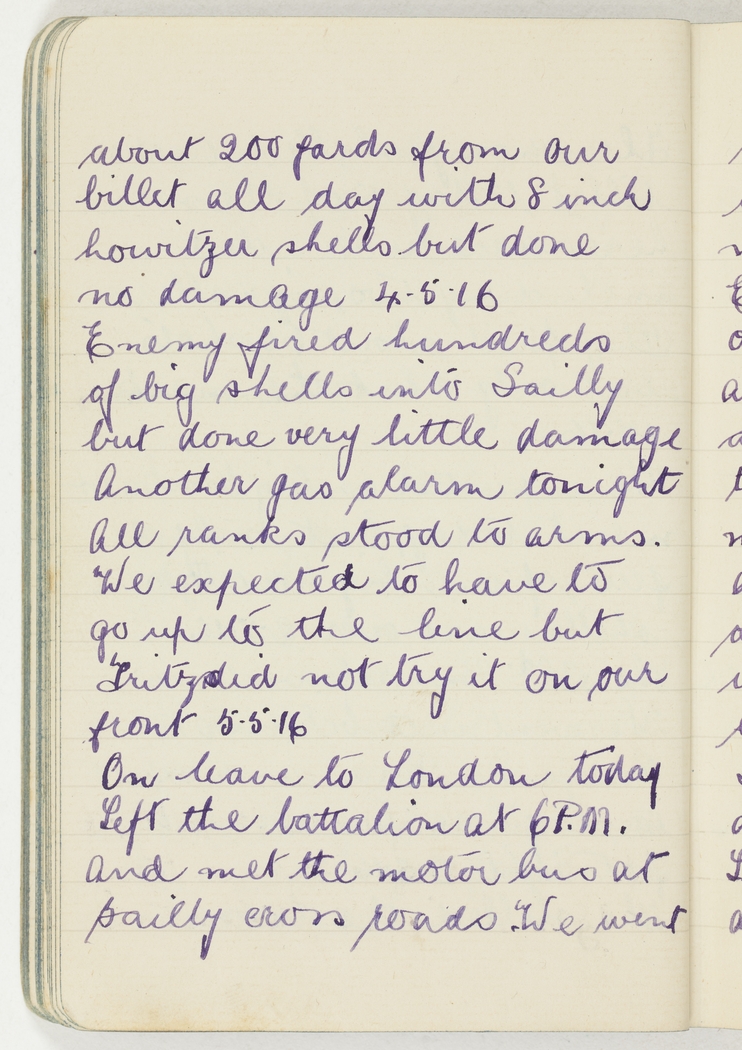 about 200 yards from our
billet all day with 8 inch
howitzer shells but done
no damage 4-5-16
Enemy fired hundreds
of big shells into Sailly
but done very little damage
Another gas alarm tonight
All ranks stood to arms.
We expected to have to
go up to the line but
Fritz did not try it on our
front 5-5-16
On leave to London today
Left the battalion at 6 P.M.
And met the motor bus at
Sailly cross roads. We went